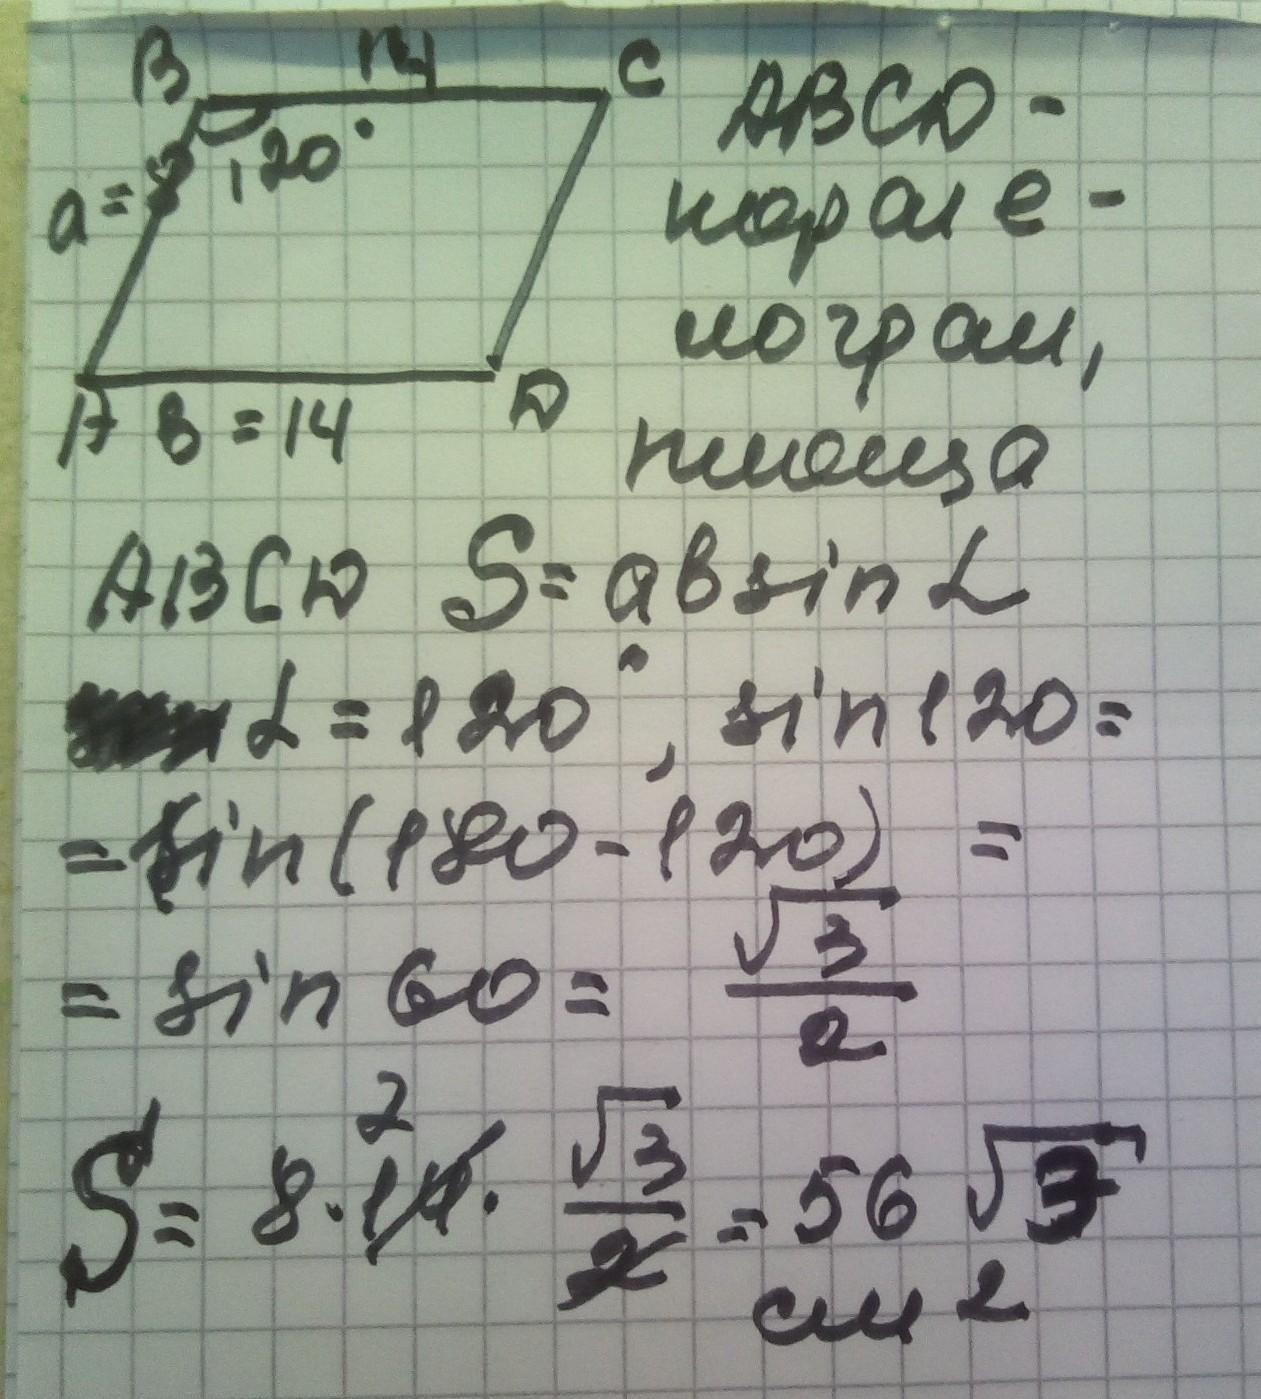 B 14 C
120°
a = 8
A в = 14 D
ABCD -
парале -
лограм,
площа
ABCD S = aв sin α
α = 120°, sin 120 =
= sin (180 - 120) =
= sin 60 = √3/2
S = 8 · 14 · √3/2 = 56 √3
2
см 2